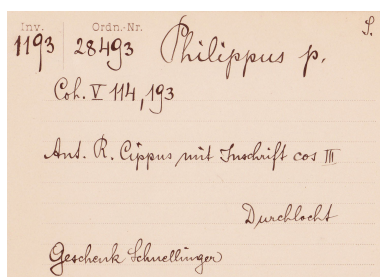 Inv. Ordn.-Nr. S.
1193 28493 Philippus p.
Coh. V 114, 193
Ant. R. Cippus mit Inschrift cos III
Durchlocht
Geschenk Schnellinger